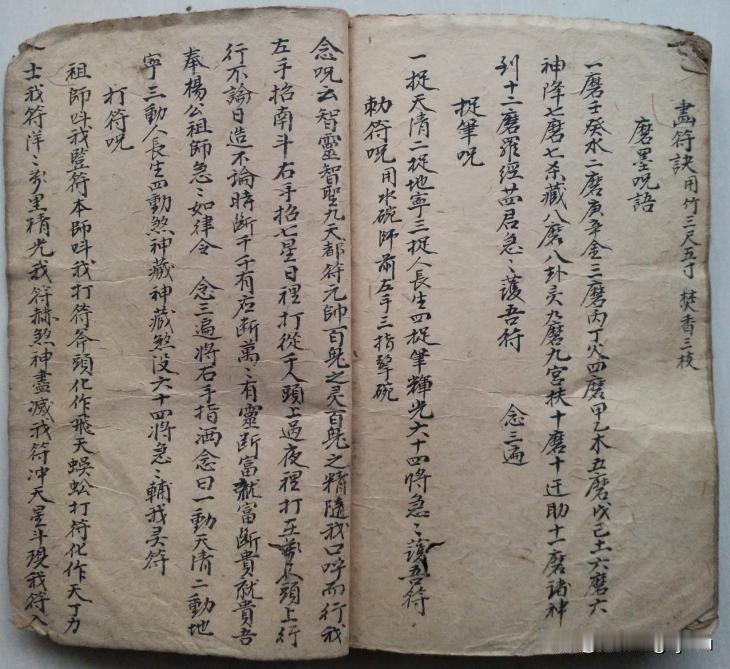 畵符訣用竹三尺五寸 焚香三枝
磨墨呪語
一磨壬癸水二磨庚辛金三磨丙丁火四磨甲乙木五磨戊己土六磨六
神降七磨七糸藏八磨八卦灵九磨九宮扶十磨十迁助十一磨諸神
到十二磨羅經廿四君急〻護吾符 念三遍
捉筆呪
一捉天清二捉地寧三捉人長生四捉筆輝光六十四將急〻護吾符
勅符呪 用水碗師前左手三指擎碗
念呪云智靈智聖九天都符元帥百鬼之灵百鬼之精隨我口呼而行我
左手招南斗右手招七星日裡打從千人頭上過夜裡打在萬人頭上行
行不論日造不論時断千千有启断萬〻有靈断富就富断貴就貴吾
奉楊公祖師急〻如律令 念三遍將右手指洒念曰一動天清二動地
寧三動人長生四動煞神藏神藏煞没六十四將急〻輔我灵符
打符呪
祖師呌我登符本師呌我打符斧頭化作飛天蜈蚣打符化作天丁力
士我符洋〻萬里精光我符赫煞神盡滅我符冲天星斗現我符入